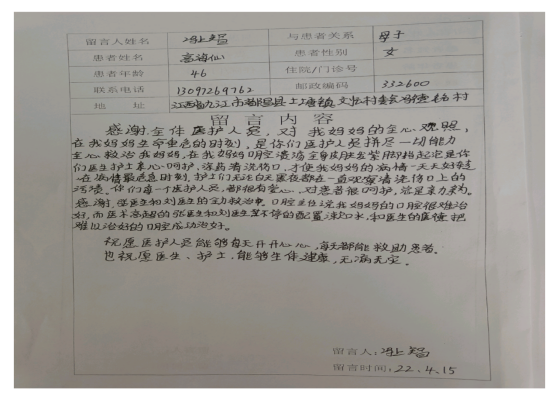 留言人姓名 冯上智 与患者关系 母子
患者姓名 高海仙 患者性别 女
患者年龄 46 住院/门诊号
联系电话 13097269762 邮政编码 332600
地 址 江西省九江市都昌县土塘镇 村
留言内容
感谢全体医护人员,对我妈妈的全心观照,
在我妈妈生命垂危的时刻,是你们医护人员拼尽一切能力
全心救治我妈妈,在我妈妈口腔溃疡全身皮肤发紫脚指起泡是你
们医生护士亲心呵护,涂药清洗伤口,才使我妈妈的病情一天天好转
在病情最危急时刻,护士们无论白天黑夜都在一直观察清洗伤口上的
污渍。你们每一个医护人员,都很有爱心,对患者很呵护,
感谢,张医生和刘医生的全力救治中,口腔 我妈妈的口腔很难治
好,而医术高超的张医生和刘医生 不停的配置漱口水,和医生的 把
难以治好的口腔成功治好。
祝愿医护人员能够每天开开心心,每天都能救助患者。
也祝愿医生、护士,能够身体健康,无病无灾。
留言人:冯上智
留言时间:22.4.15